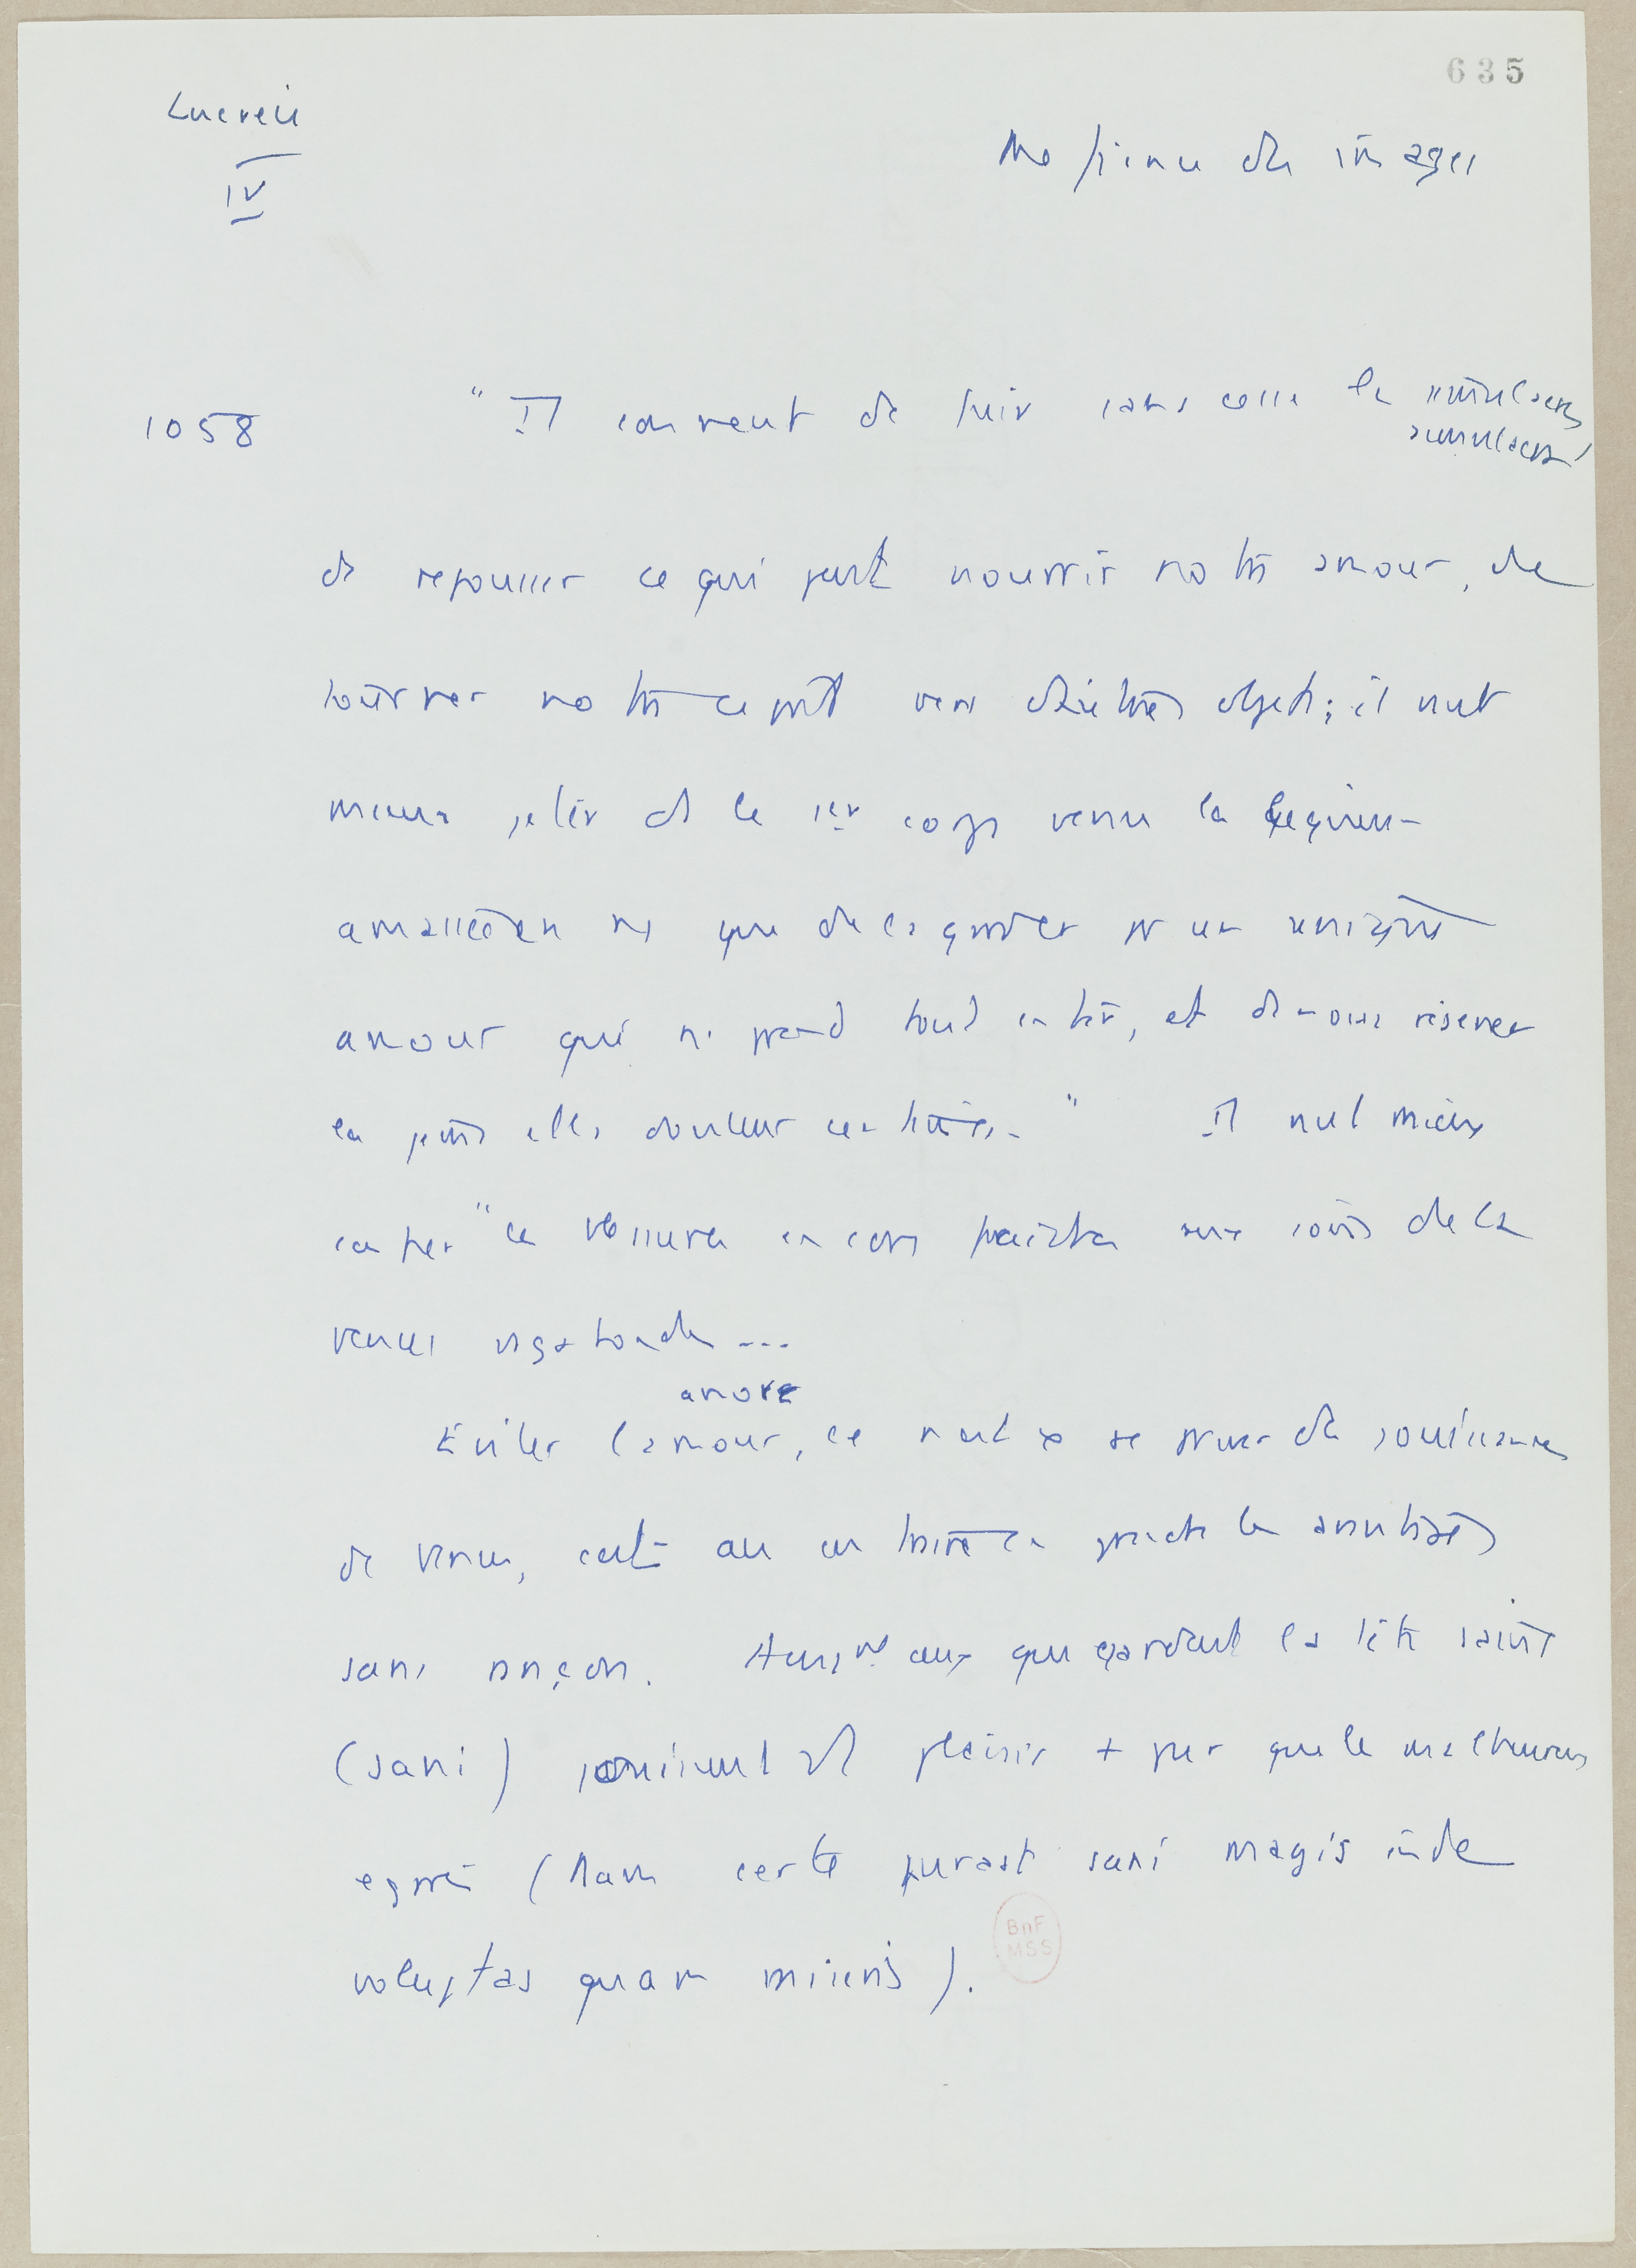 635
Lucrèce
IV
Méfiance des images
1058
" Il convient de fuir sans cesse les simulacres
simulacra
de repousser ce qui peut nourrir notre amour, de
tourner notre esprit vers d'autres objets ; il vaut
mieux jeter ds le 1er corps venu la liqueur
amassée en ns que de la garder pr un unique
amour qui ns prend tout entier, et de nous réserver
la peine et la douleur certaines. " Il vaut mieux
confier " les blessures encore fraîches aux soins de la
Venus vagabonde ...
amore
Eviter l'amour, ce n'est pas se priver des jouissances
de Venus, c'est au contraire en prendre les avantages
sans rançon. ceux qui gardent la tête saine
(sani) jouissent d'1 plaisir + pur que le malheureux
égaré (Nam certe purast sanis magis inde
voluptas quam miseris).
BnF
MSS